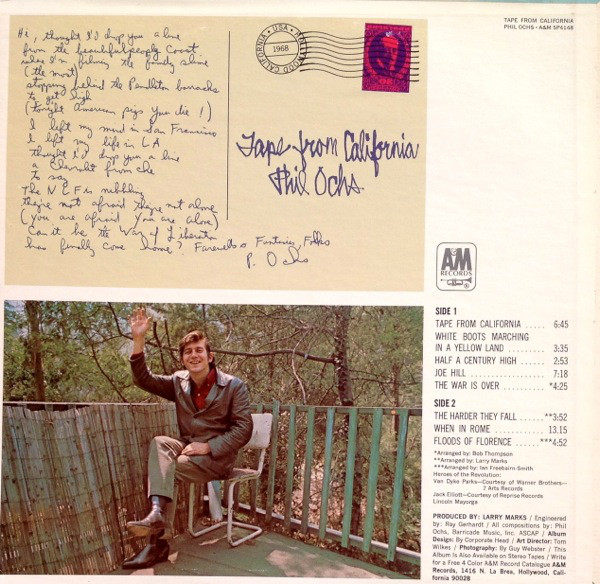 TAPE FROM CALIFORNIA
PHIL OCHS • A&M SP4148
Hi, thought I'd drop you a line
from the beautiful people Coast
when I'm filming the family show
(the most)
stopping behind the Pendleton barracks
to get high
(tonight American pigs you die!)
I left my mind in San Francisco
I left my life in LA
thought I'd drop you a line
a Chevrolet from che
to say
The NLF is nibbling
they're not afraid they're not alone
(you are afraid you are alone)
Can it be the War of Liberation
has finally come home? Farewells & Fantasies, Folks
P. Ochs
HOLLYWOOD CALIFORNIA • USA •
1968
Tape from California
Phil Ochs
A&M
RECORDS
SIDE 1
TAPE FROM CALIFORNIA ..... 6:45
WHITE BOOTS MARCHING
IN A YELLOW LAND .......... 3:35
HALF A CENTURY HIGH ...... 2:53
JOE HILL ................... 7:18
THE WAR IS OVER .......... *4:25
SIDE 2
THE HARDER THEY FALL ..... **3:52
WHEN IN ROME ............. 13.15
FLOODS OF FLORENCE ..... ***4:52
*Arranged by: Bob Thompson
**Arranged by: Larry Marks
***Arranged by: Ian Freebairn-Smith
Heroes of the Revolution:
Van Dyke Parks—Courtesy of Warner Brothers—
7 Arts Records
Jack Elliott—Courtesy of Reprise Records
Lincoln Mayorga
PRODUCED BY: LARRY MARKS / Engineered
by: Ray Gerhardt / All compositions by: Phil
Ochs, Barricade Music, Inc. ASCAP / Album
Design: By Corporate Head / Art Director: Tom
Wilkes / Photography: By Guy Webster / This
Album Is Also Available on Stereo Tapes / Write
for a Free 4 Color A&M Record Catalogue A&M
Records, 1416 N. La Brea, Hollywood, Cali-
fornia 90028